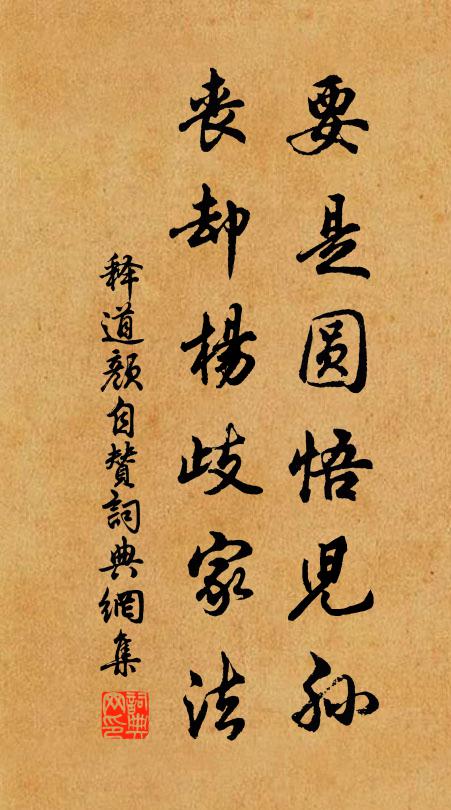 要是圆悟児孙
丧却楊歧家法
释道颜自赞詞典網集
詞典网印